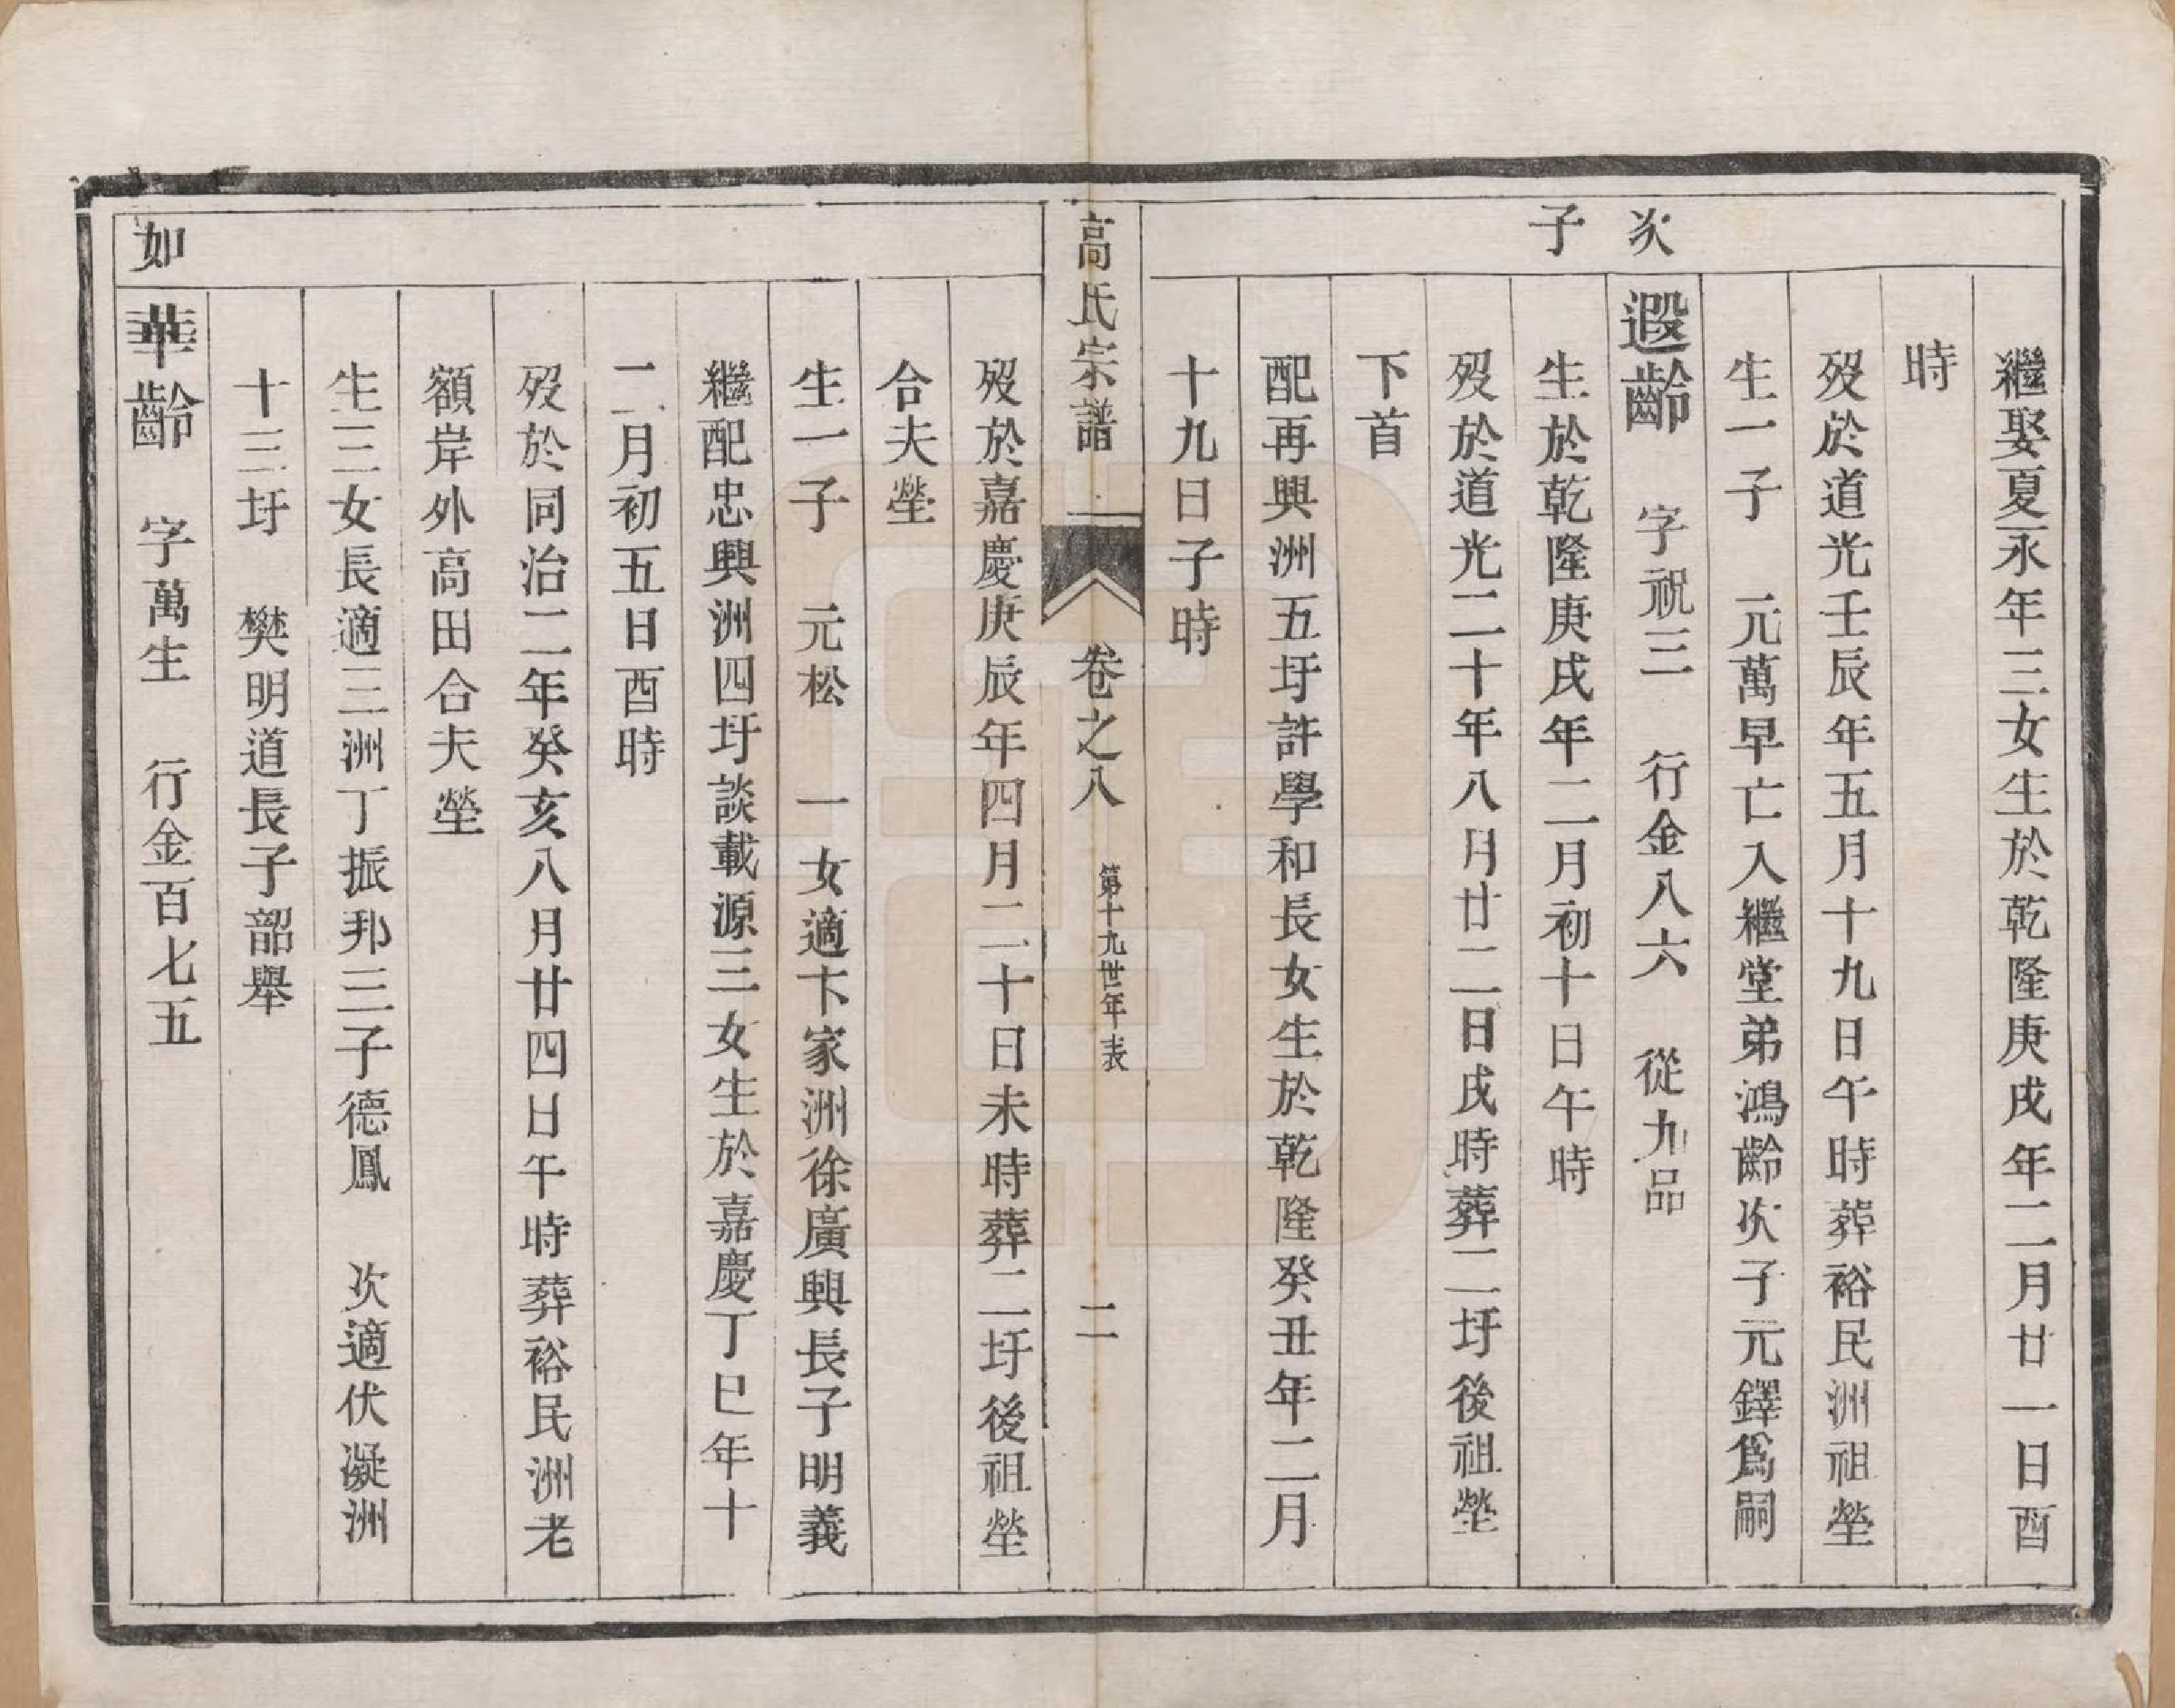 繼娶夏永年三女生於乾隆庚戌年二月廿一日酉
時
歿於道光壬辰年五月十九日午時葬裕民洲祖塋
生一子　元萬早亡入繼堂弟鴻齡次子元鐸爲嗣
次子
遐齡　字祝三　行金八六　從九品
生於乾隆庚戌年二月初十日午時
歿於道光二十年八月廿二日戌時葬二圩後祖塋
下首
配再興洲五圩許學和長女生於乾隆癸丑年二月
十九日子時
高氏宗譜　卷之八　第十九世年表　二
歿於嘉慶庚辰年四月二十日未時葬二圩後祖塋
合夫塋
生一子　元松　一女適卞家洲徐廣興長子明義
繼配忠興洲四圩談載源三女生於嘉慶丁巳年十
二月初五日酉時
歿於同治二年癸亥八月廿四日午時葬裕民洲老
額岸外高田合夫塋
生三女長適三洲丁振邦三子德鳳　次適伏凝洲
十三圩　樊明道長子韶舉
如
華齡　字萬生　行金百七五